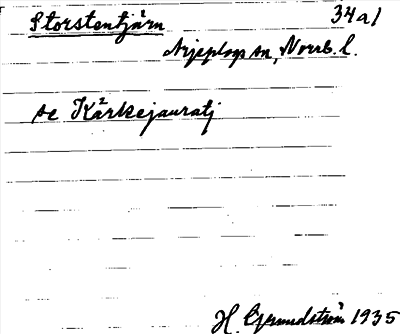 Storstentjärn 34a1
Arjeplogs sn, Norrb. l.
se Kärkejauratj
H. Grundström 1935